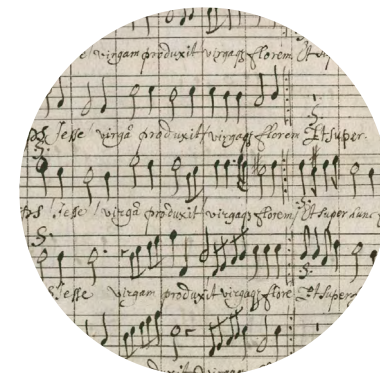 virgam produxit virgaqȝ florem Et sup
Jesse virgã produxit virgaqȝ florem Et super.
Jesse virgã produxit virgaqȝ florem Et super hunc
Jesse virgam produxit virgaqȝ flore Et super
duxit virgam